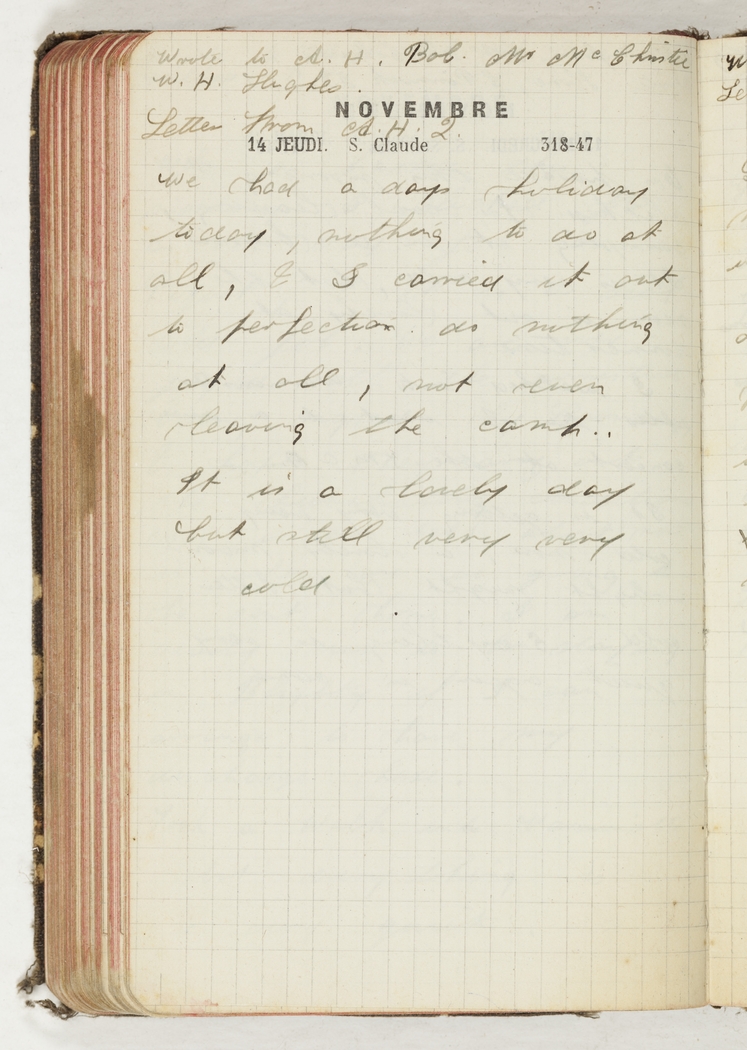 Wrote to A. H. Bob. Mr McChristie
W. H. Hughes.
NOVEMBRE
Letter from A. H. 2.
14 JEUDI. S. Claude 318-47
We had a days holiday
today, nothing to do at
all, & I carried it out
to perfection. do nothing
at all, not even
leaving the camp..
It is a lovely day
but still very very
cold